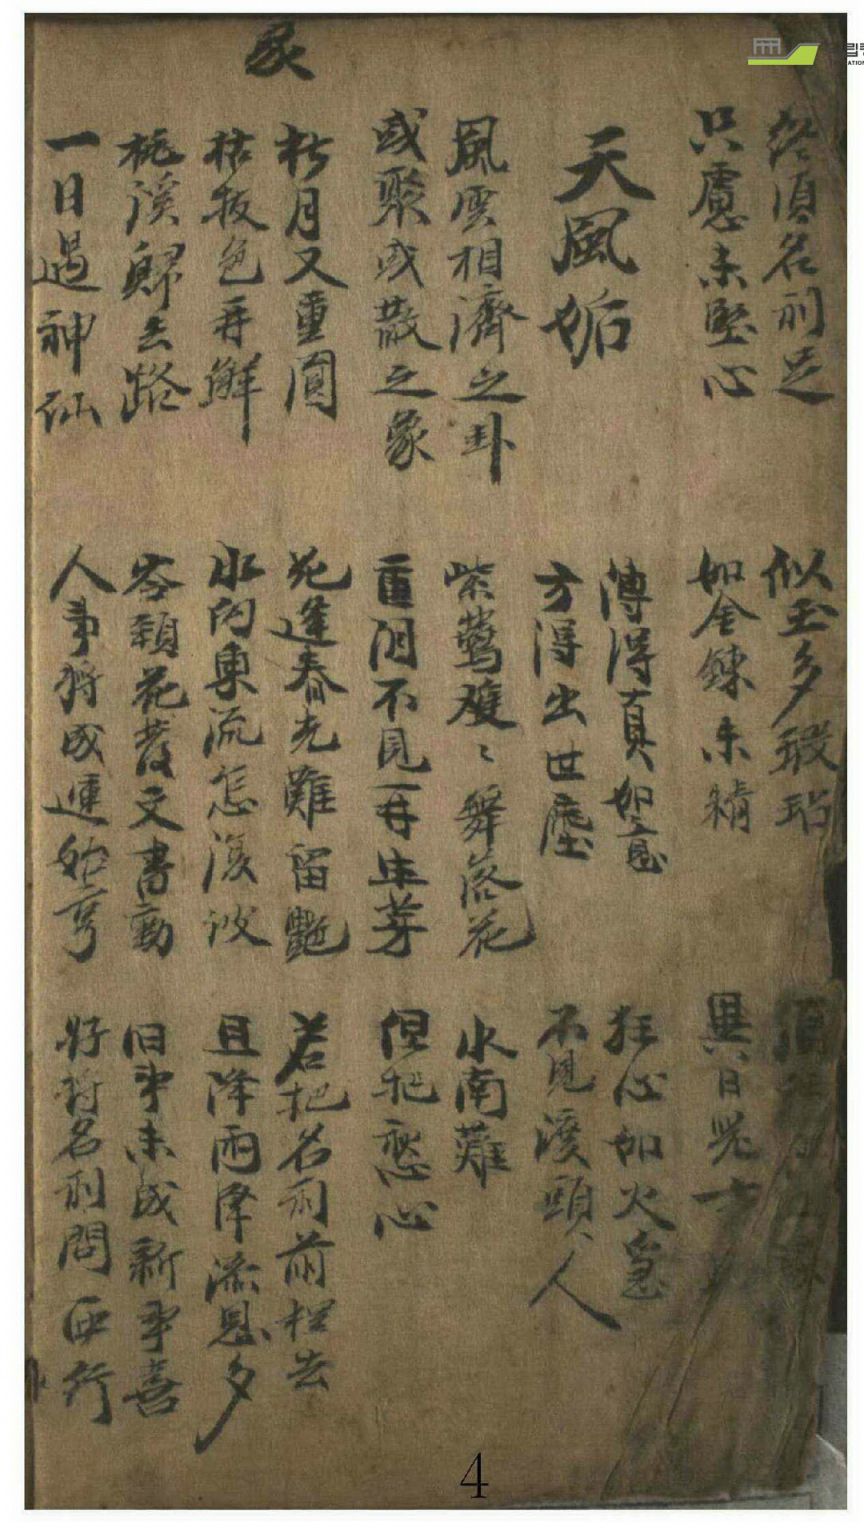 終須名利足 似玉多瑕玷
只慮未堅心 如金鍊未精 異日
天風姤
傳得真如意 狂心如火急
方得出世塵 不見溪頭人
風雲相濟之卦 紫鶯雙〻舞落花 水南難
或聚或散之象 重開不見再生芽 但把愁心
月又重圓 花逢春光難留艶 若把名利前程去
枯枝色再鮮 水向東流怎復波 且降雨澤添恩多
桃溪歸去路 頭花發文書動 旧事未成新事喜
一日遇神仙 人事將成運始亨 好將名利問西行
4